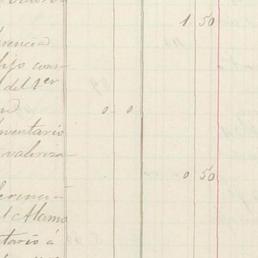 1 50
erencia
hijo con-
del 1er
0 0
nventario
valoriza-
0 50
ferenci-
el Alamo
tario á